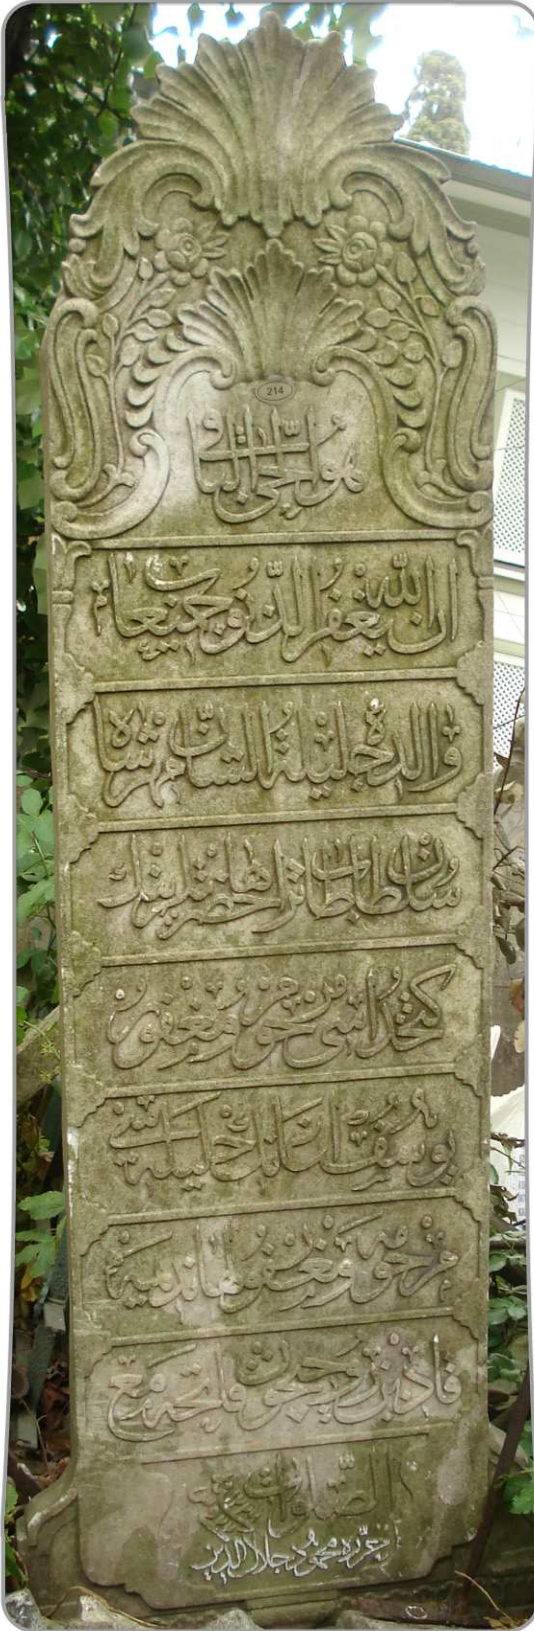 214
هو الحي الباقي
ان الله يغفر الذنوب جميعا
والده جليلة الشان مهرشاه
سلطان طاب ثراها حضرتلرينك
كتخداسى مرحوم و مغفور
يوسف اغانك حليله سى
مرحومه و مغفور لها
قادين روحيچون فاتحه مع
الصلوات
حرره محمود جلال الدين